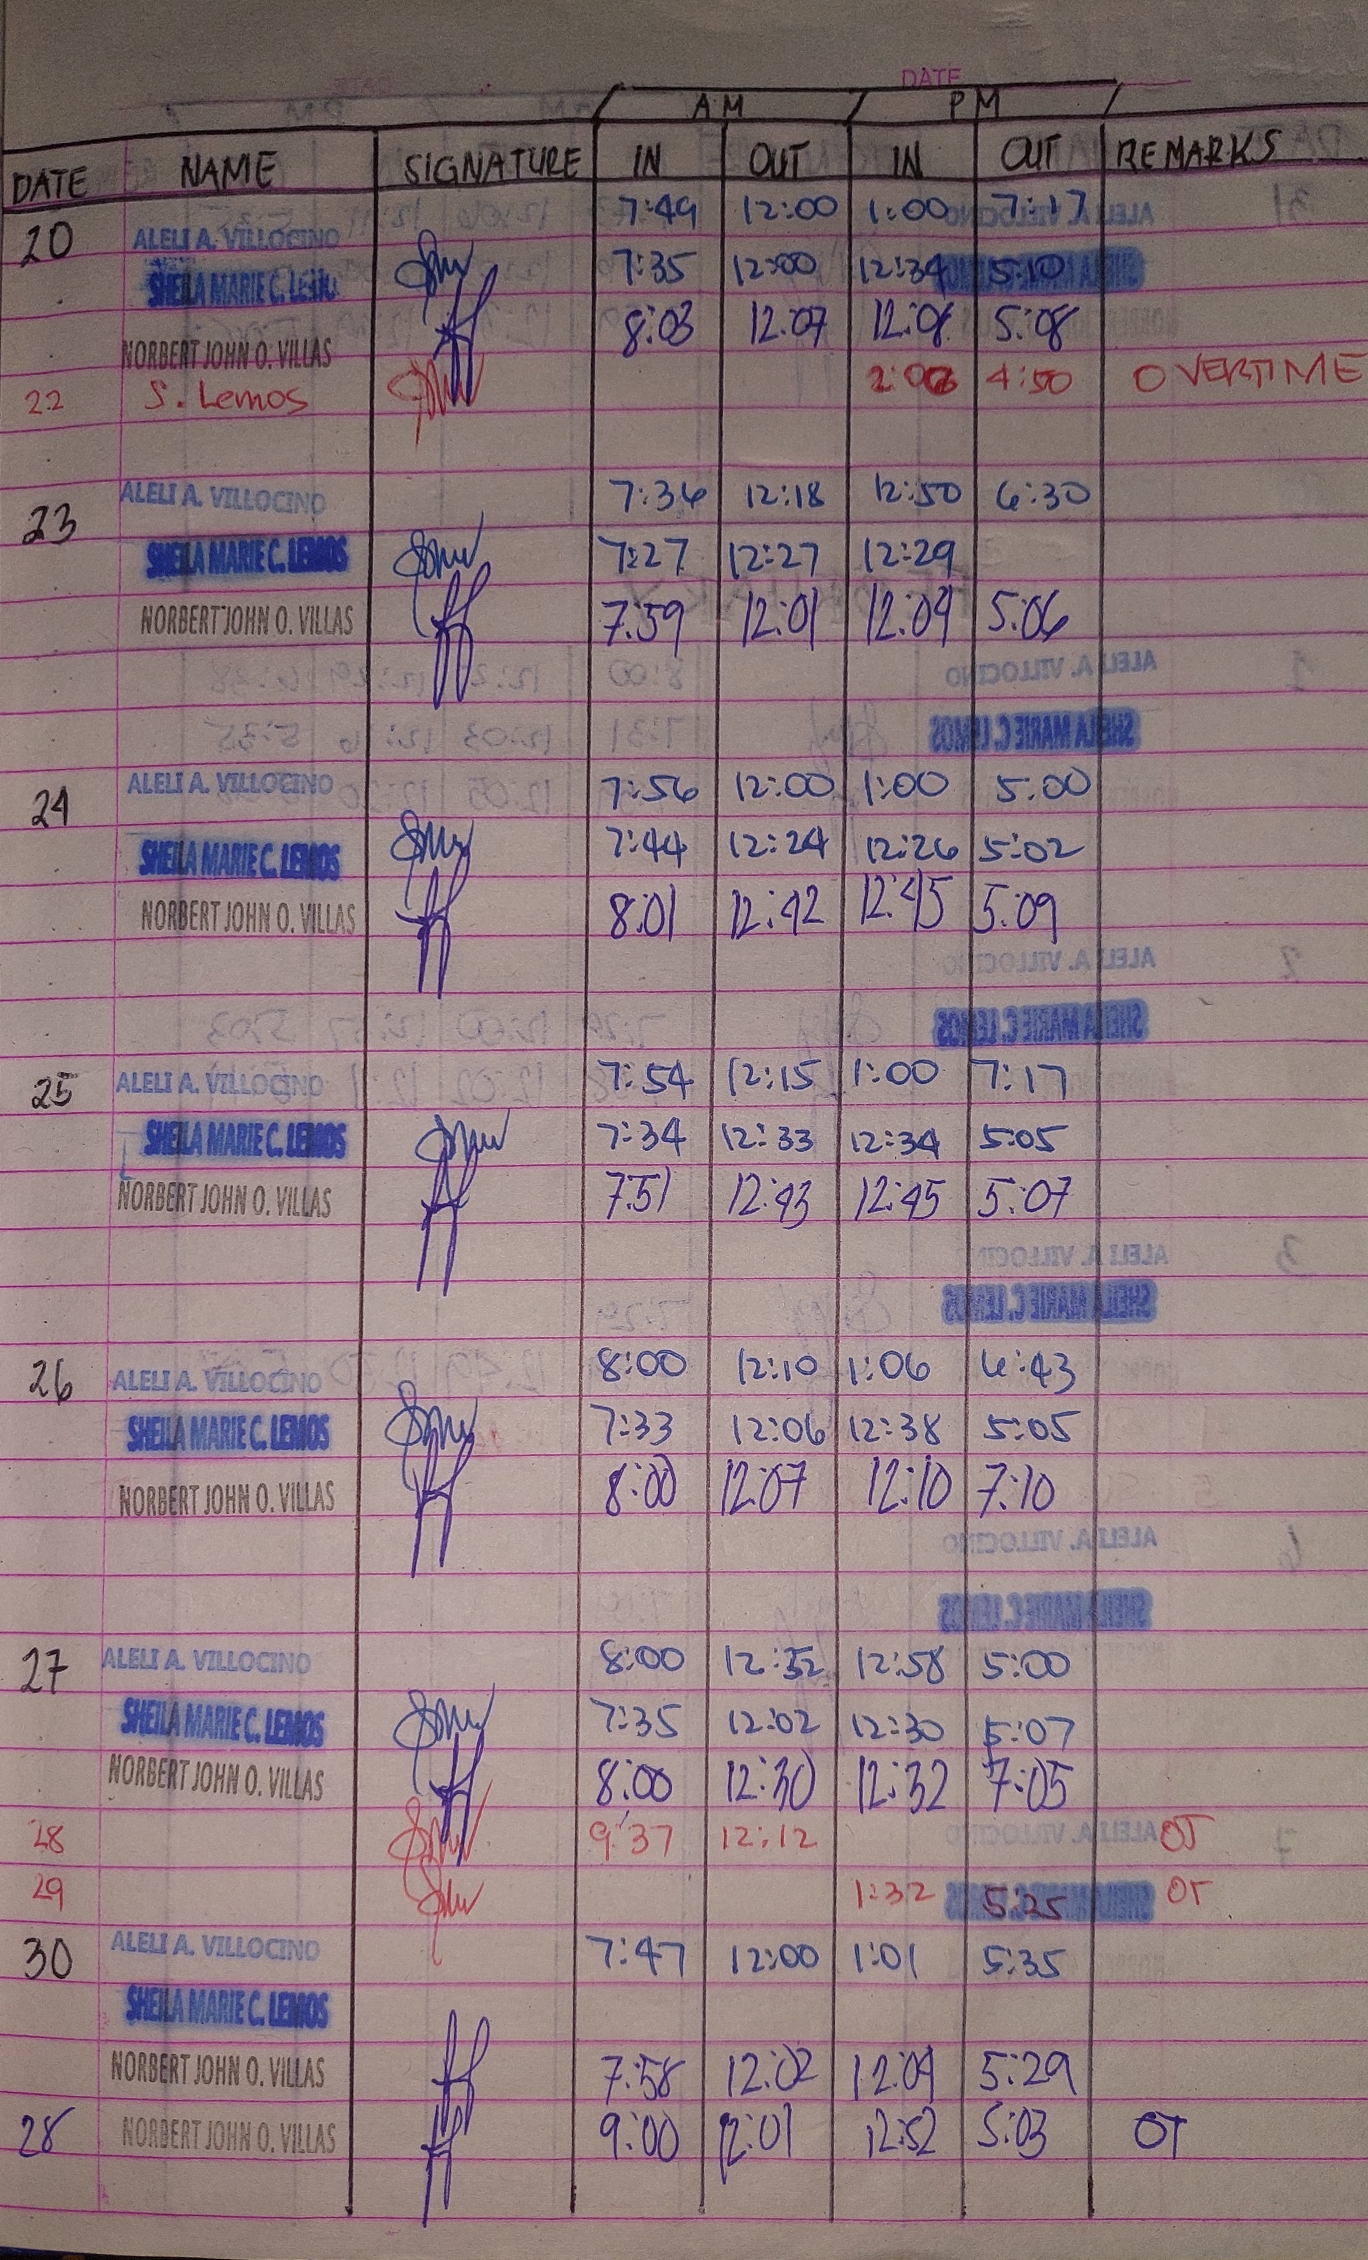 DATE
AM PM
DATE NAME SIGNATURE IN OUT IN OUT REMARKS
20 ALELI A. VILLOCINO 7:49 12:00 1:00 7:17
SHEILA MARIE C. LEMOS 7:35 12:00 12:34 5:10
NORBERT JOHN O. VILLAS 8:03 12:07 12:08 5:08
22 S. Lemos 2:06 4:50 OVERTIME
23 ALELI A. VILLOCINO 7:36 12:18 12:50 6:30
SHEILA MARIE C. LEMOS 7:27 12:27 12:29
NORBERT JOHN O. VILLAS 7:59 12:01 12:04 5:06
24 ALELI A. VILLOCINO 7:56 12:00 1:00 5:00
SHEILA MARIE C. LEMOS 7:44 12:24 12:26 5:02
NORBERT JOHN O. VILLAS 8:01 12:42 12:45 5:09
25 ALELI A. VILLOCINO 7:54 12:15 1:00 7:17
SHEILA MARIE C. LEMOS 7:34 12:33 12:34 5:05
NORBERT JOHN O. VILLAS 7:51 12:43 12:45 5:07
26 ALELI A. VILLOCINO 8:00 12:10 1:06 6:43
SHEILA MARIE C. LEMOS 7:33 12:06 12:38 5:05
NORBERT JOHN O. VILLAS 8:00 12:07 12:10 7:10
27 ALELI A. VILLOCINO 8:00 12:52 12:58 5:00
SHEILA MARIE C. LEMOS 7:35 12:02 12:30 5:07
NORBERT JOHN O. VILLAS 8:00 12:30 12:32 7:05
28 9:37 12:12 OT
29 1:32 5:25 OT
30 ALELI A. VILLOCINO 7:47 12:00 1:01 5:35
SHEILA MARIE C. LEMOS
NORBERT JOHN O. VILLAS 7:58 12:02 12:04 5:29
28 NORBERT JOHN O. VILLAS 9:00 12:01 12:52 5:03 OT